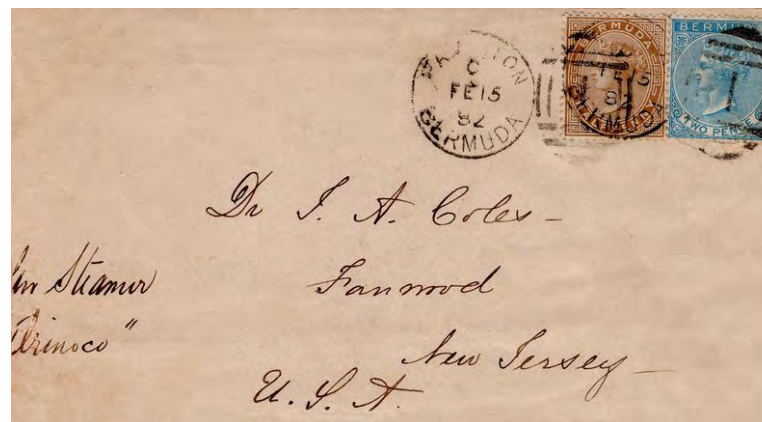 HAMILTON
C
FE 15
82
BERMUDA
BERMUDA
FE 15
82
BERMUDA
BERMUDA
TWO PENCE
Dr J. A. Coles –
Fanwood
New Jersey –
U. S. A.
Steamer
Orinoco"